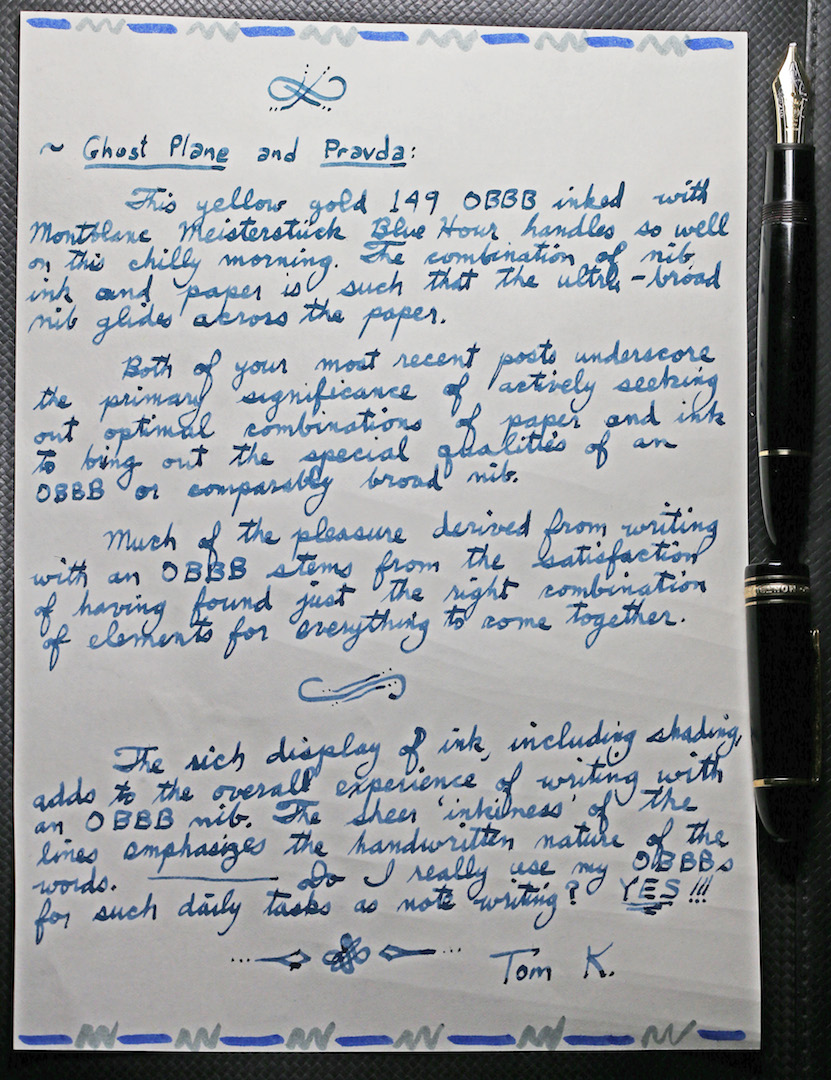 ~ Ghost Plane and Pravda:
This yellow gold 149 OBBB inked with
Montblanc Meisterstück Blue Hour handles so well
on this chilly morning. The combination of nib,
ink and paper is such that the ultra-broad
nib glides across the paper.
Both of your most recent posts underscore
the primary significance of actively seeking
out optimal combinations of paper and ink
to bring out the special qualities of an
OBBB or comparably broad nib.
Much of the pleasure derived from writing
with an OBBB stems from the satisfaction
of having found just the right combination
of elements for everything to come together.
The rich display of ink, including shading,
adds to the overall experience of writing with
an OBBB nib. The sheer 'inkiness' of the
lines emphasizes the handwritten nature of the
words. ——— Do I really use my OBBBs
for such daily tasks as note writing? YES!!!
Tom K.